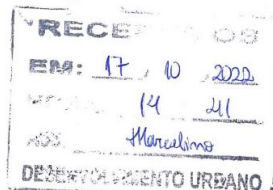 RECEBEMOS
EM: 17 10 2022
14 41
ASS. Marcelino
DESENVOLVIMENTO URBANO